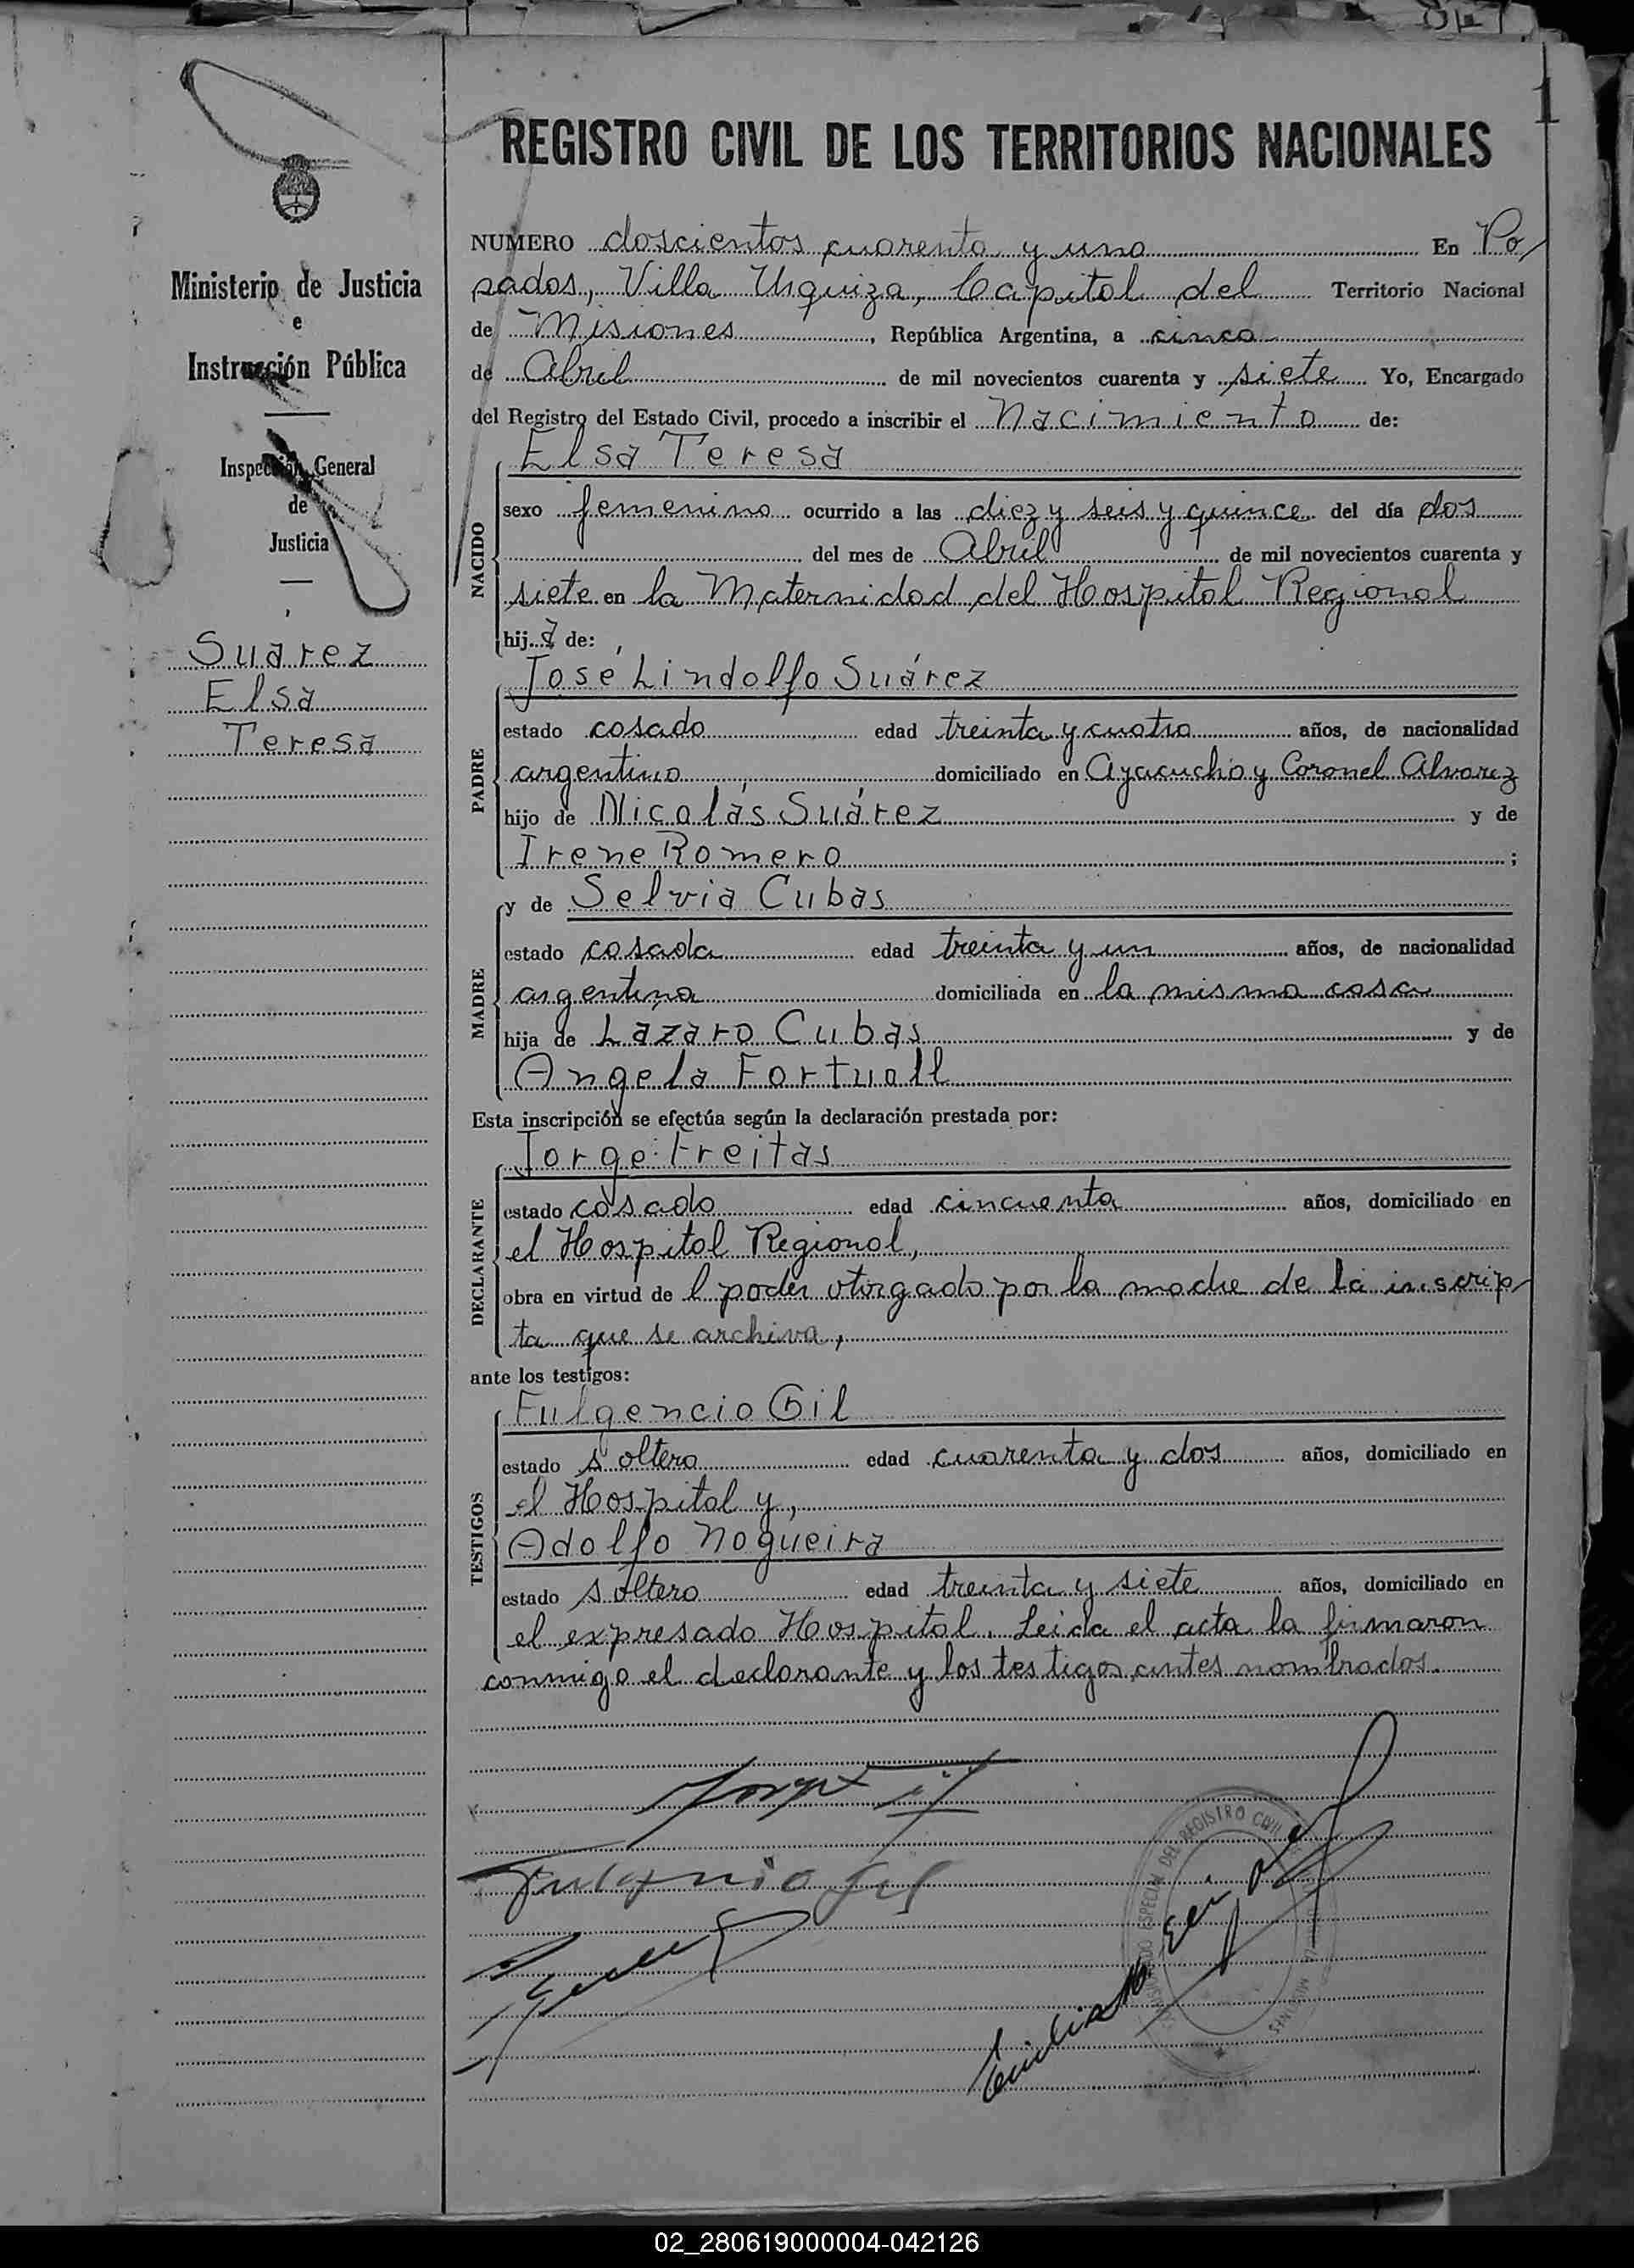 1
REGISTRO CIVIL DE LOS TERRITORIOS NACIONALES
Ministerio de Justicia
e
Instrucción Pública
Inspección General
de
Justicia
Suarez
Elsa
Teresa
NUMERO doscientos cuarenta y uno En Po
sadas, Villa Urquiza, Capital del Territorio Nacional
de Misiones, República Argentina, a cinco
de Abril de mil novecientos cuarenta y siete Yo, Encargado
del Registro del Estado Civil, procedo a inscribir el Nacimiento de:
NACIDO
Elsa Teresa
sexo femenino ocurrido a las diez y seis y quince del día dos
del mes de Abril de mil novecientos cuarenta y
siete en la Maternidad del Hospital Regional
hija de:
PADRE
José Lindolfo Suárez
estado casado edad treinta y cuatro años, de nacionalidad
argentino domiciliado en Ayacucho y Coronel Alvarez
hijo de Nicolás Suárez y de
Irene Romero;
MADRE
y de Selvia Cubas
estado casada edad treinta y un años, de nacionalidad
argentina domiciliada en la misma casa
hija de Lázaro Cubas y de
Angela Fortuoll
Esta inscripción se efectúa según la declaración prestada por:
DECLARANTE
Jorge Freitas
estado casado edad cincuenta años, domiciliado en
el Hospital Regional,
obra en virtud de l poder otorgado por la madre de la inscrip
ta que se archiva,
ante los testigos:
TESTIGOS
Fulgencio Gil
estado soltero edad cuarenta y dos años, domiciliado en
el Hospital y,
Adolfo Nogueira
estado soltero edad treinta y siete años, domiciliado en
el expresado Hospital. Leida el acta la firmaron
conmigo el declarante y los testigos antes nombrados.
Fulgencio Gil
DEL REGISTRO CIVIL
MISIONES
02_280619000004-042126